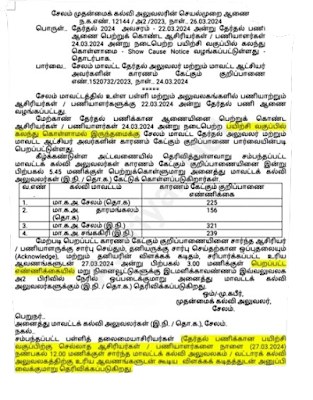 சேலம் முதன்மைக் கல்வி அலுவலரின் செயல்முறை ஆணை
ந.க.எண். 12144 / அ2 /2023, நாள். 26.03.2024
பொருள்:- தேர்தல் 2024 அவசரம் - 22.03.2024 அன்று தேர்தல் பணி
ஆணை பெற்றுக் கொண்ட ஆசிரியர்கள் / பணியாளர்கள்
24.03.2024 அன்று நடைபெற்ற பயிற்சி வகுப்பில் கலந்து
கொள்ளாமை - Show Cause Notice வழங்கப்பட்டுள்ளது -
தொடர்பாக.
பார்வை:- சேலம் மாவட்ட தேர்தல் அலுவலர் மற்றும் மாவட்ட ஆட்சியர்
அவர்களின் காரணம் கேட்கும் குறிப்பாணை
எண்.1520732/2023, நாள். 24.03.2024
*****
சேலம் மாவட்டத்தில் உள்ள பள்ளி மற்றும் அலுவலகங்களில் பணியாற்றும்
ஆசிரியர்கள் / பணியாளர்களுக்கு 22.03.2024 அன்று தேர்தல் பணி ஆணை
வழங்கப்பட்டது.
மேற்காண் தேர்தல் பணிக்கான ஆணையினை பெற்றுக் கொண்ட
ஆசிரியர்கள் / பணியாளர்கள் 24.03.2024 அன்று நடைபெற்ற பயிற்சி வகுப்பில்
கலந்து கொள்ளாமல் இருந்தமைக்கு சேலம் மாவட்ட தேர்தல் அலுவலர் மற்றும்
மாவட்ட ஆட்சியர் அவர்களின் காரணம் கேட்கும் குறிப்பாணை பார்வையின்படி
பெறப்பட்டுள்ளது.
கீழ்க்கண்டுள்ள அட்டவணையில் தெரிவித்துள்ளவாறு சம்பந்தப்பட்ட
மாவட்டக் கல்வி அலுவலர்கள் காரணம் கேட்கும் குறிப்பாணையினை இன்று
பிற்பகல் 5.45 மணிக்குள் பெற்றுக்கொள்ளுமாறு அனைத்து மாவட்டக் கல்வி
அலுவலர்கள் (இ.நி / தொ.க) கேட்டுக் கொள்ளப்படுகிறார்கள்.
வ.எண் கல்வி மாவட்டம் காரணம் கேட்கும் குறிப்பாணை எண்ணிக்கை
1. மா.க.அ. சேலம் (தொ.க) 225
2. மா.க.அ. தாரமங்கலம் (தொ.க) 156
3. மா.க.அ. சேலம் (இ.நி) 321
4. மா.க.அ. சங்ககிரி (இ.நி) 239
மேற்படி பெறப்பட்ட காரணம் கேட்கும் குறிப்பாணையினை சார்ந்த ஆசிரியர்
/ பணியாளருக்கு சார்பு செய்தும், தனியருக்கு சார்பு செய்தற்கான ஒப்புதலையும்
(Acknowledge), மற்றும் தனியரின் விளக்கக் கடிதம், சரிபார்க்கப்பட்ட உரிய
ஆவணங்களுடன் 27.03.2024 அன்று பிற்பகல் 3.00 மணிக்குள் பெறப்பட்ட
எண்ணிக்கையில் மறு நினைவூட்டுகளுக்கு இடமளிக்காவண்ணம் இவ்வலுவலக
அ2 பிரிவில் நேரில் ஒப்படைக்குமாறு அனைத்து மாவட்டக் கல்வி
அலுவலர்கள் (இ.நி / தொ.க) தெரிவிக்கப்படுகிறது.
ஒம்/-மு.கபீர்,
முதன்மைக் கல்வி அலுவலர்,
சேலம்.
பெறுநர்:-
அனைத்து மாவட்டக் கல்வி அலுவலர்கள் (இ.நி / தொ.க), சேலம்.
நகல்:-
சம்பந்தப்பட்ட பள்ளித் தலைமையாசிரியர்கள் (தேர்தல் பணிக்கான பயிற்சி
வகுப்பிற்கு செல்லாத ஆசிரியர்கள் / பணியாளர்களை நாளை (27.03.2024)
நண்பகல் 12.00 மணிக்குள் சார்ந்த மாவட்டக் கல்வி அலுவலகம் / வட்டாரக் கல்வி
அலுவலகத்திற்கு உரிய ஆவணங்களுடன் கூடிய விளக்கக் கடிதத்துடன் அனுப்பி
வைக்குமாறு தெரிவிக்கப்படுகிறது.